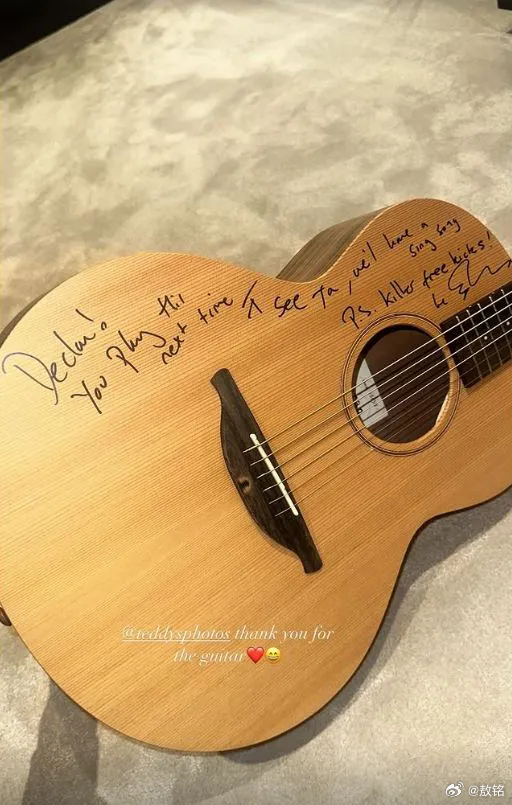 Declan!
You play this
next time I see ya, we'll have a
sing song
P.S. killer free kicks!
@teddysphotos thank you for
the guitar❤️😄
@敖铭